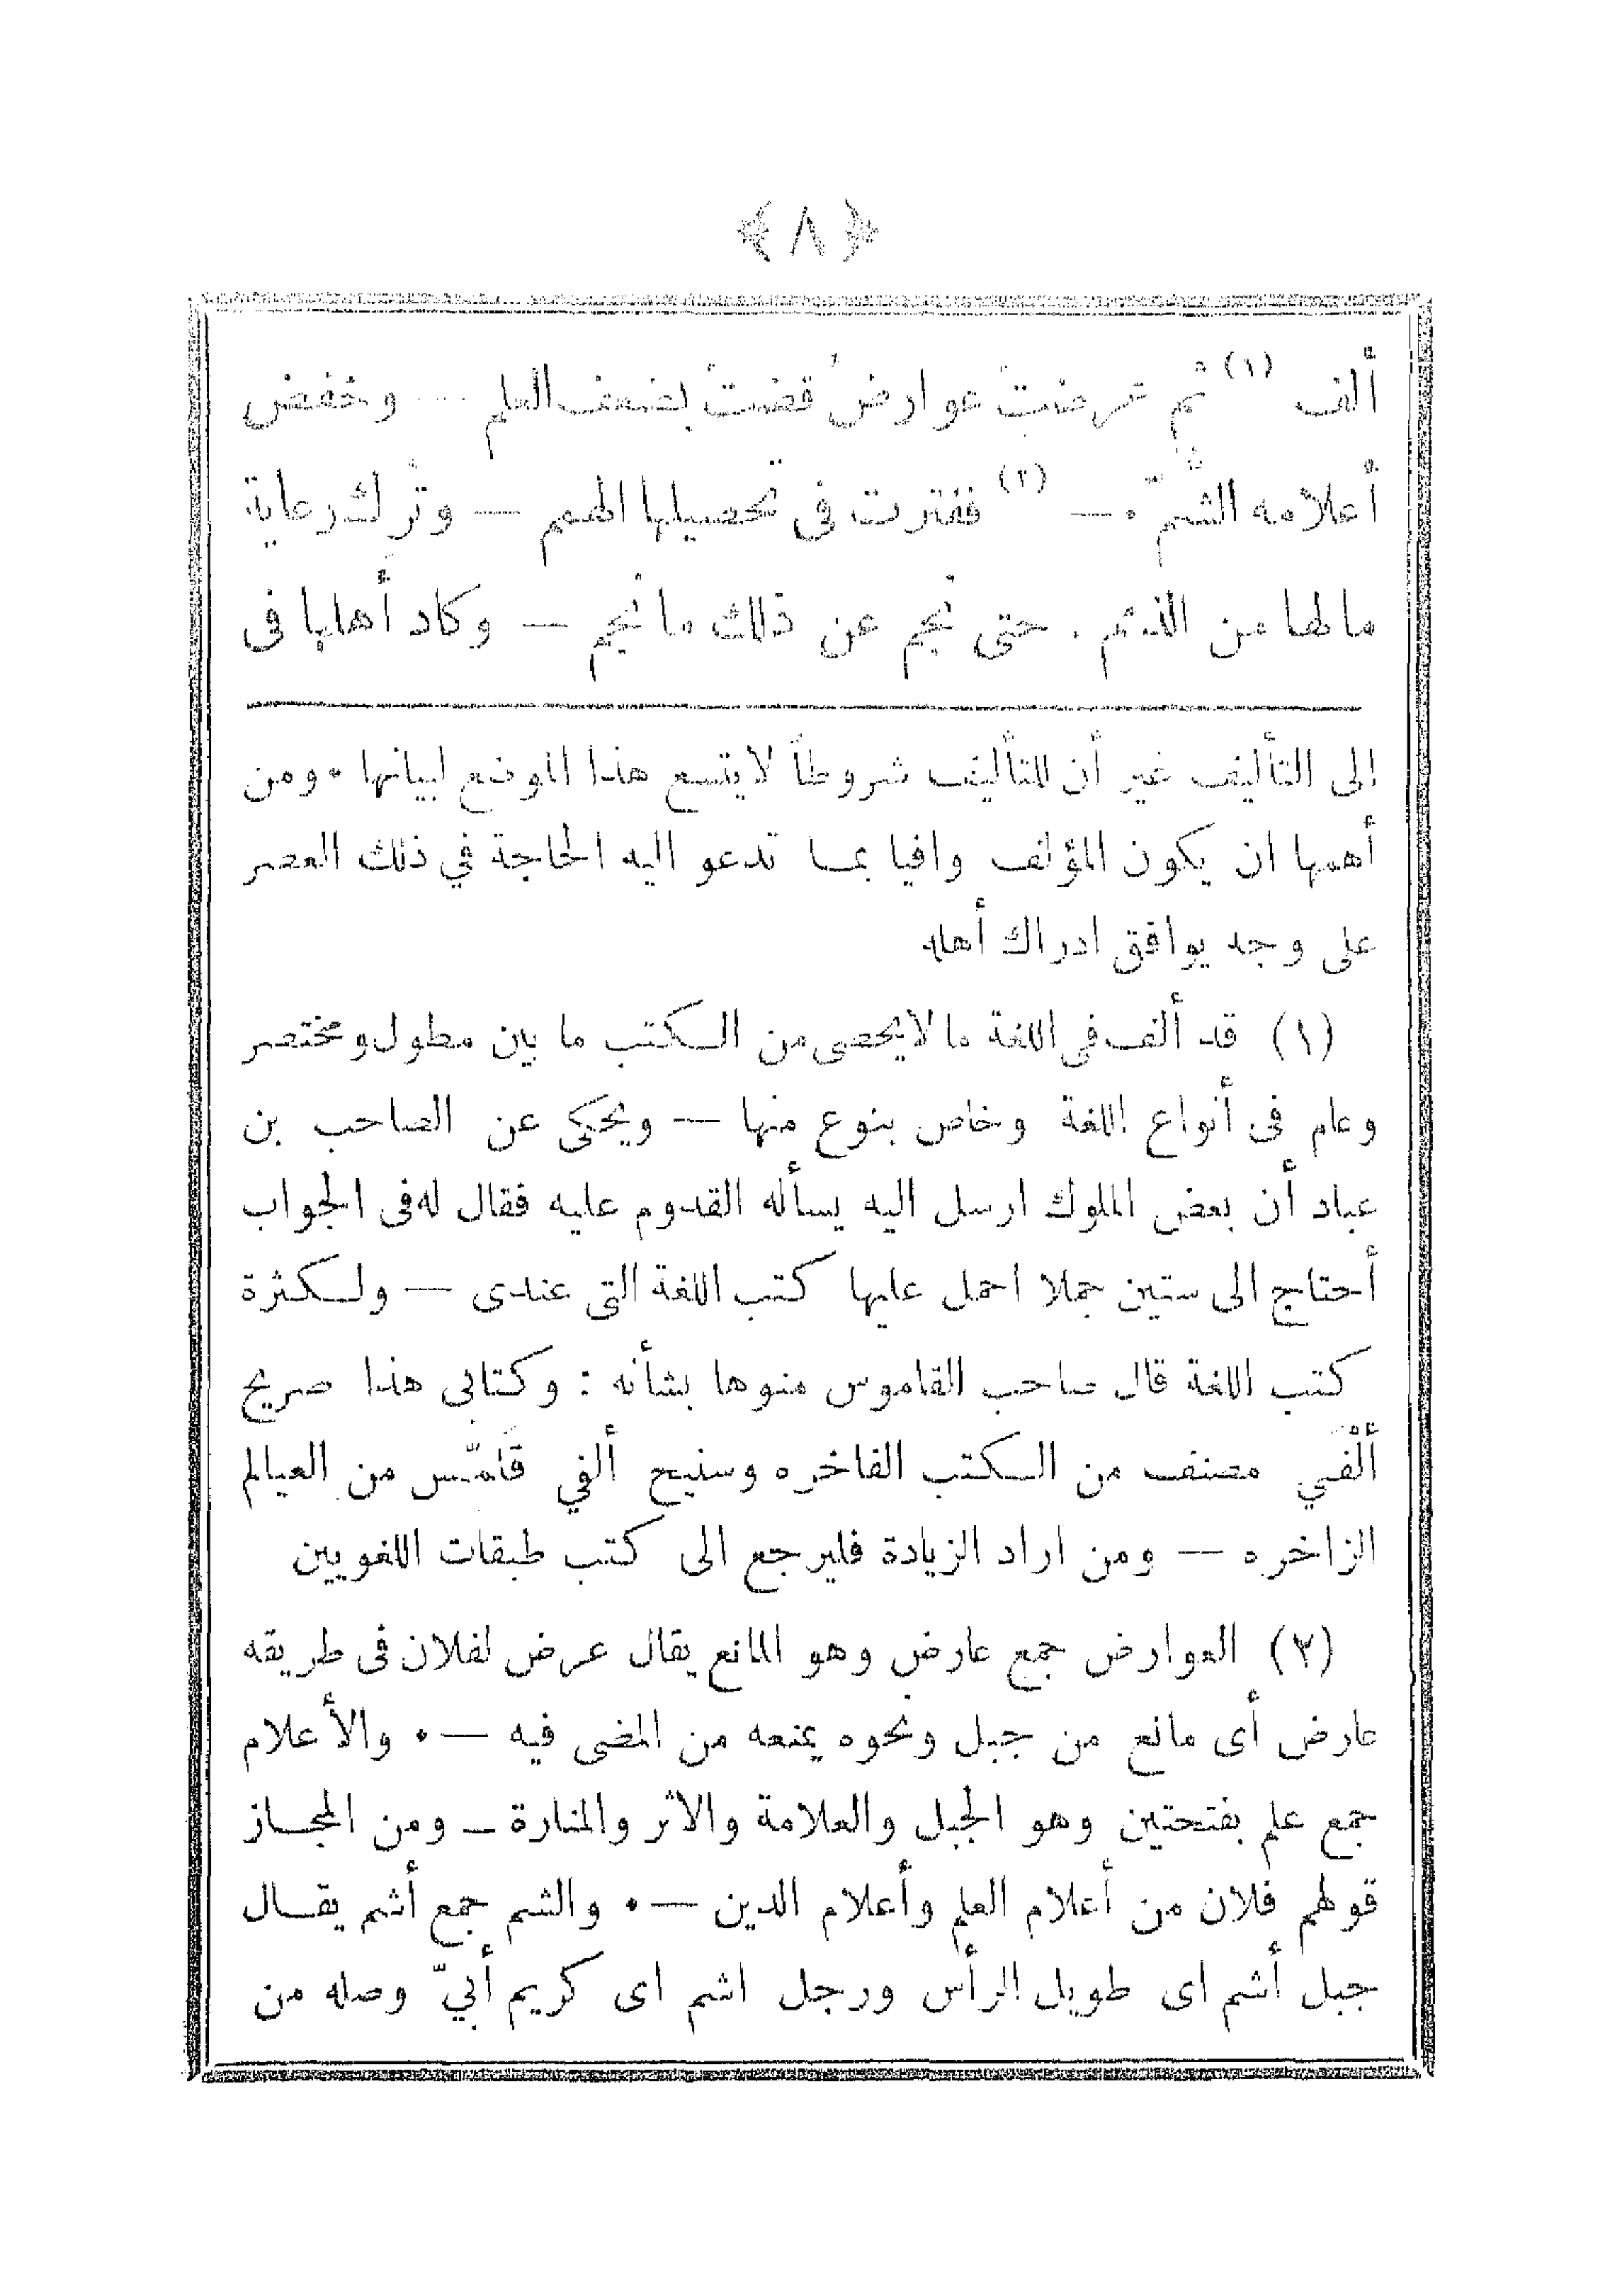 ﴿ ٨ ﴾
ألف (١) ثم عرضت عوارضُ قضت بضعف العلم — وخفض
أعلامه الشُّمّ ٠ — (٢) ففترت في تحصيلها الهمم — وتُرِك رعاية
مالها من الذمم . حتى نجم عن ذلك ما نجم — وكاد أهلها في
الى التأليف غير أن للتأليف شروطاً لايتسع هذا الموضع لبيانها ٠ ومن
أهمها ان يكون المؤلف وافيا بمــا تدعو اليه الحاجة في ذلك العصر
على وجه يوافق ادراك أهله
(١) قد ألف في اللغة ما لايحصى من الــكتب ما بين مطول ومختصر
وعام في أنواع اللغة وخاص بنوع منها — ويحكى عن الصاحب بن
عباد أن بعض الملوك ارسل اليه يسأله القدوم عليه فقال له فى الجواب
أحتاج الى ستين جملا احمل عليها كتب اللغة التى عندى — ولــكثرة
كتب اللغة قال صاحب القاموس منوها بشأنه : وكتابى هذا صريح
أَلْفَي مصنف من الــكتب الفاخره وسنيح ألفي قَلَمَّس من العيالم
الزاخره — ومن اراد الزيادة فليرجع الى كتب طبقات اللغويين
(٢) العوارض جمع عارض وهو المانع يقال عرض لفلان فى طريقه
عارض أى مانع من جبل ونحوه يمنعه من المضى فيه — ٠ والأعلام
جمع علم بفتحتين وهو الجبل والعلامة والاثر والمنارة — ومن المجــاز
قولهم فلان من أعلام العلم وأعلام الدين — ٠ والشم جمع أشم يقــال
جبل أشم اى طويل الرأس ورجل اشم اى كريم أبيّ وصله من